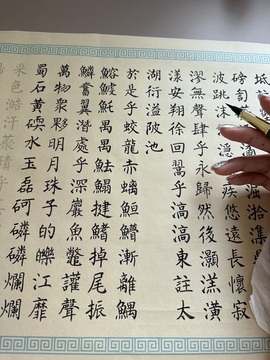 坻
磅訇
波跳沫疾悠遠長懷寂
漻無聲肆乎永歸然後灝溔潢
漾安翔徐回翯乎滈滈東註太
湖衍溢陂池
於是乎蛟龍赤螭漸離鰅
鰫魠禺禺魼鰨揵鰭掉尾振
鱗奮翼潛處乎深巖魚鱉讙聲
萬物眾夥明月珠子的皪江靡
蜀石黃碝水玉磊砢磷磷爛爛
采色澔汗積